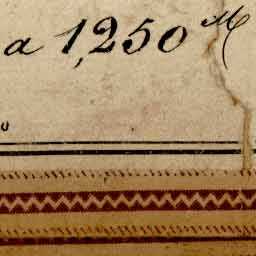 a 1,250 M